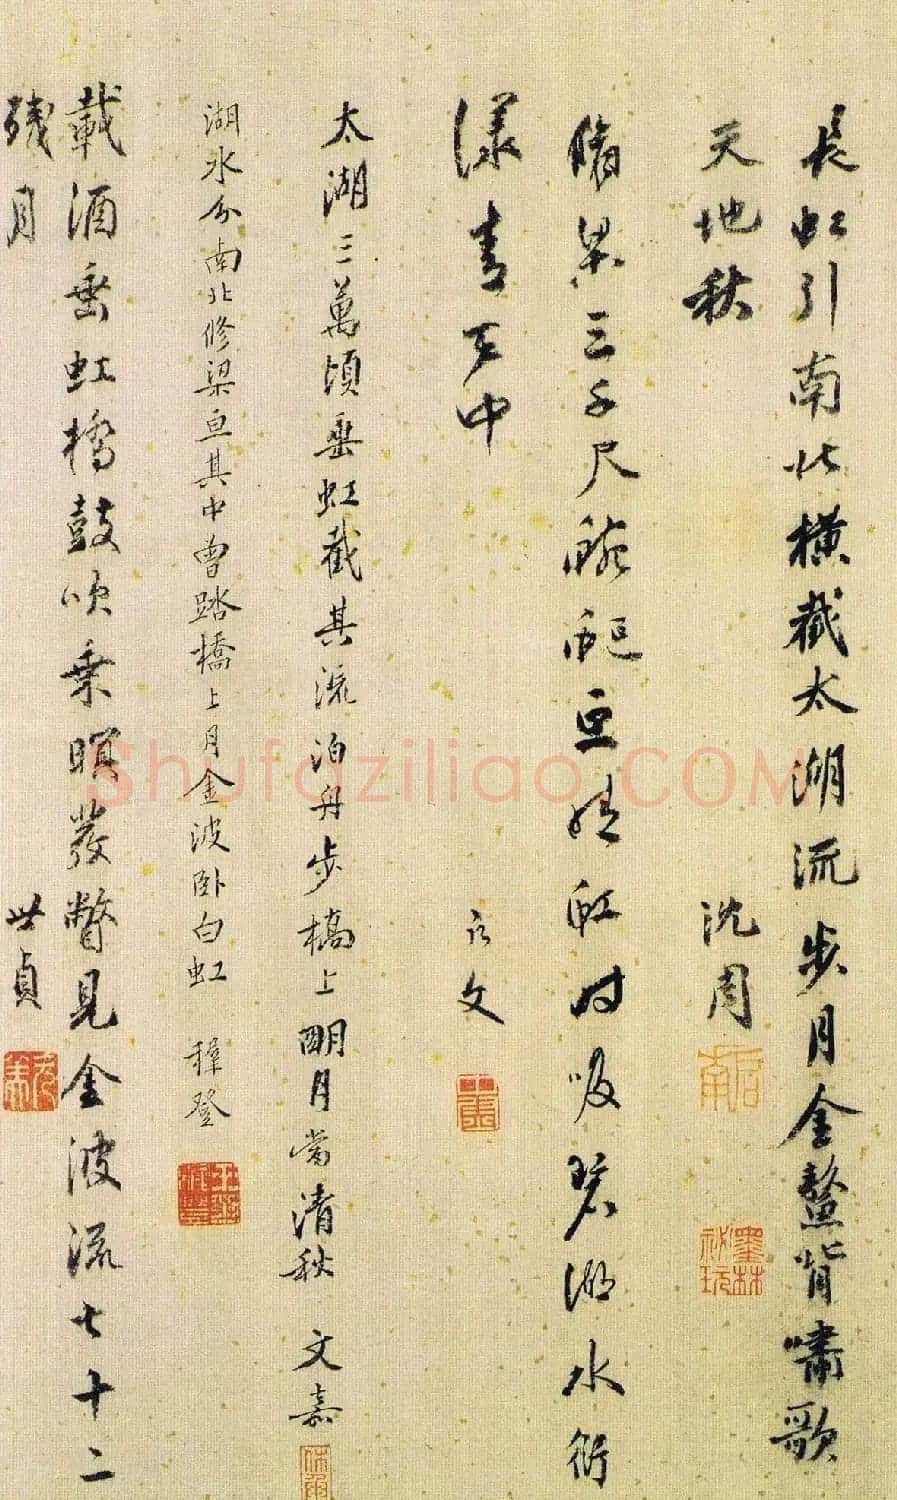 長虹引南北橫截太湖流步月金鰲背嘯歌
天地秋 沈周
墨林祕玩
脩梁三千尺蜿蜒亘晴虹时吸碧湖水衍
漾青天中 文
太湖三萬頃垂虹截其流泊舟步橋上明月當清秋 文嘉
湖水分南北修梁亘其中曾踏橋上月金波卧白虹 穉登
載酒垂虹橋鼓吹乘暝發瞥見金波流七十二
殘月 世貞
元美
Shufaziliao.COM